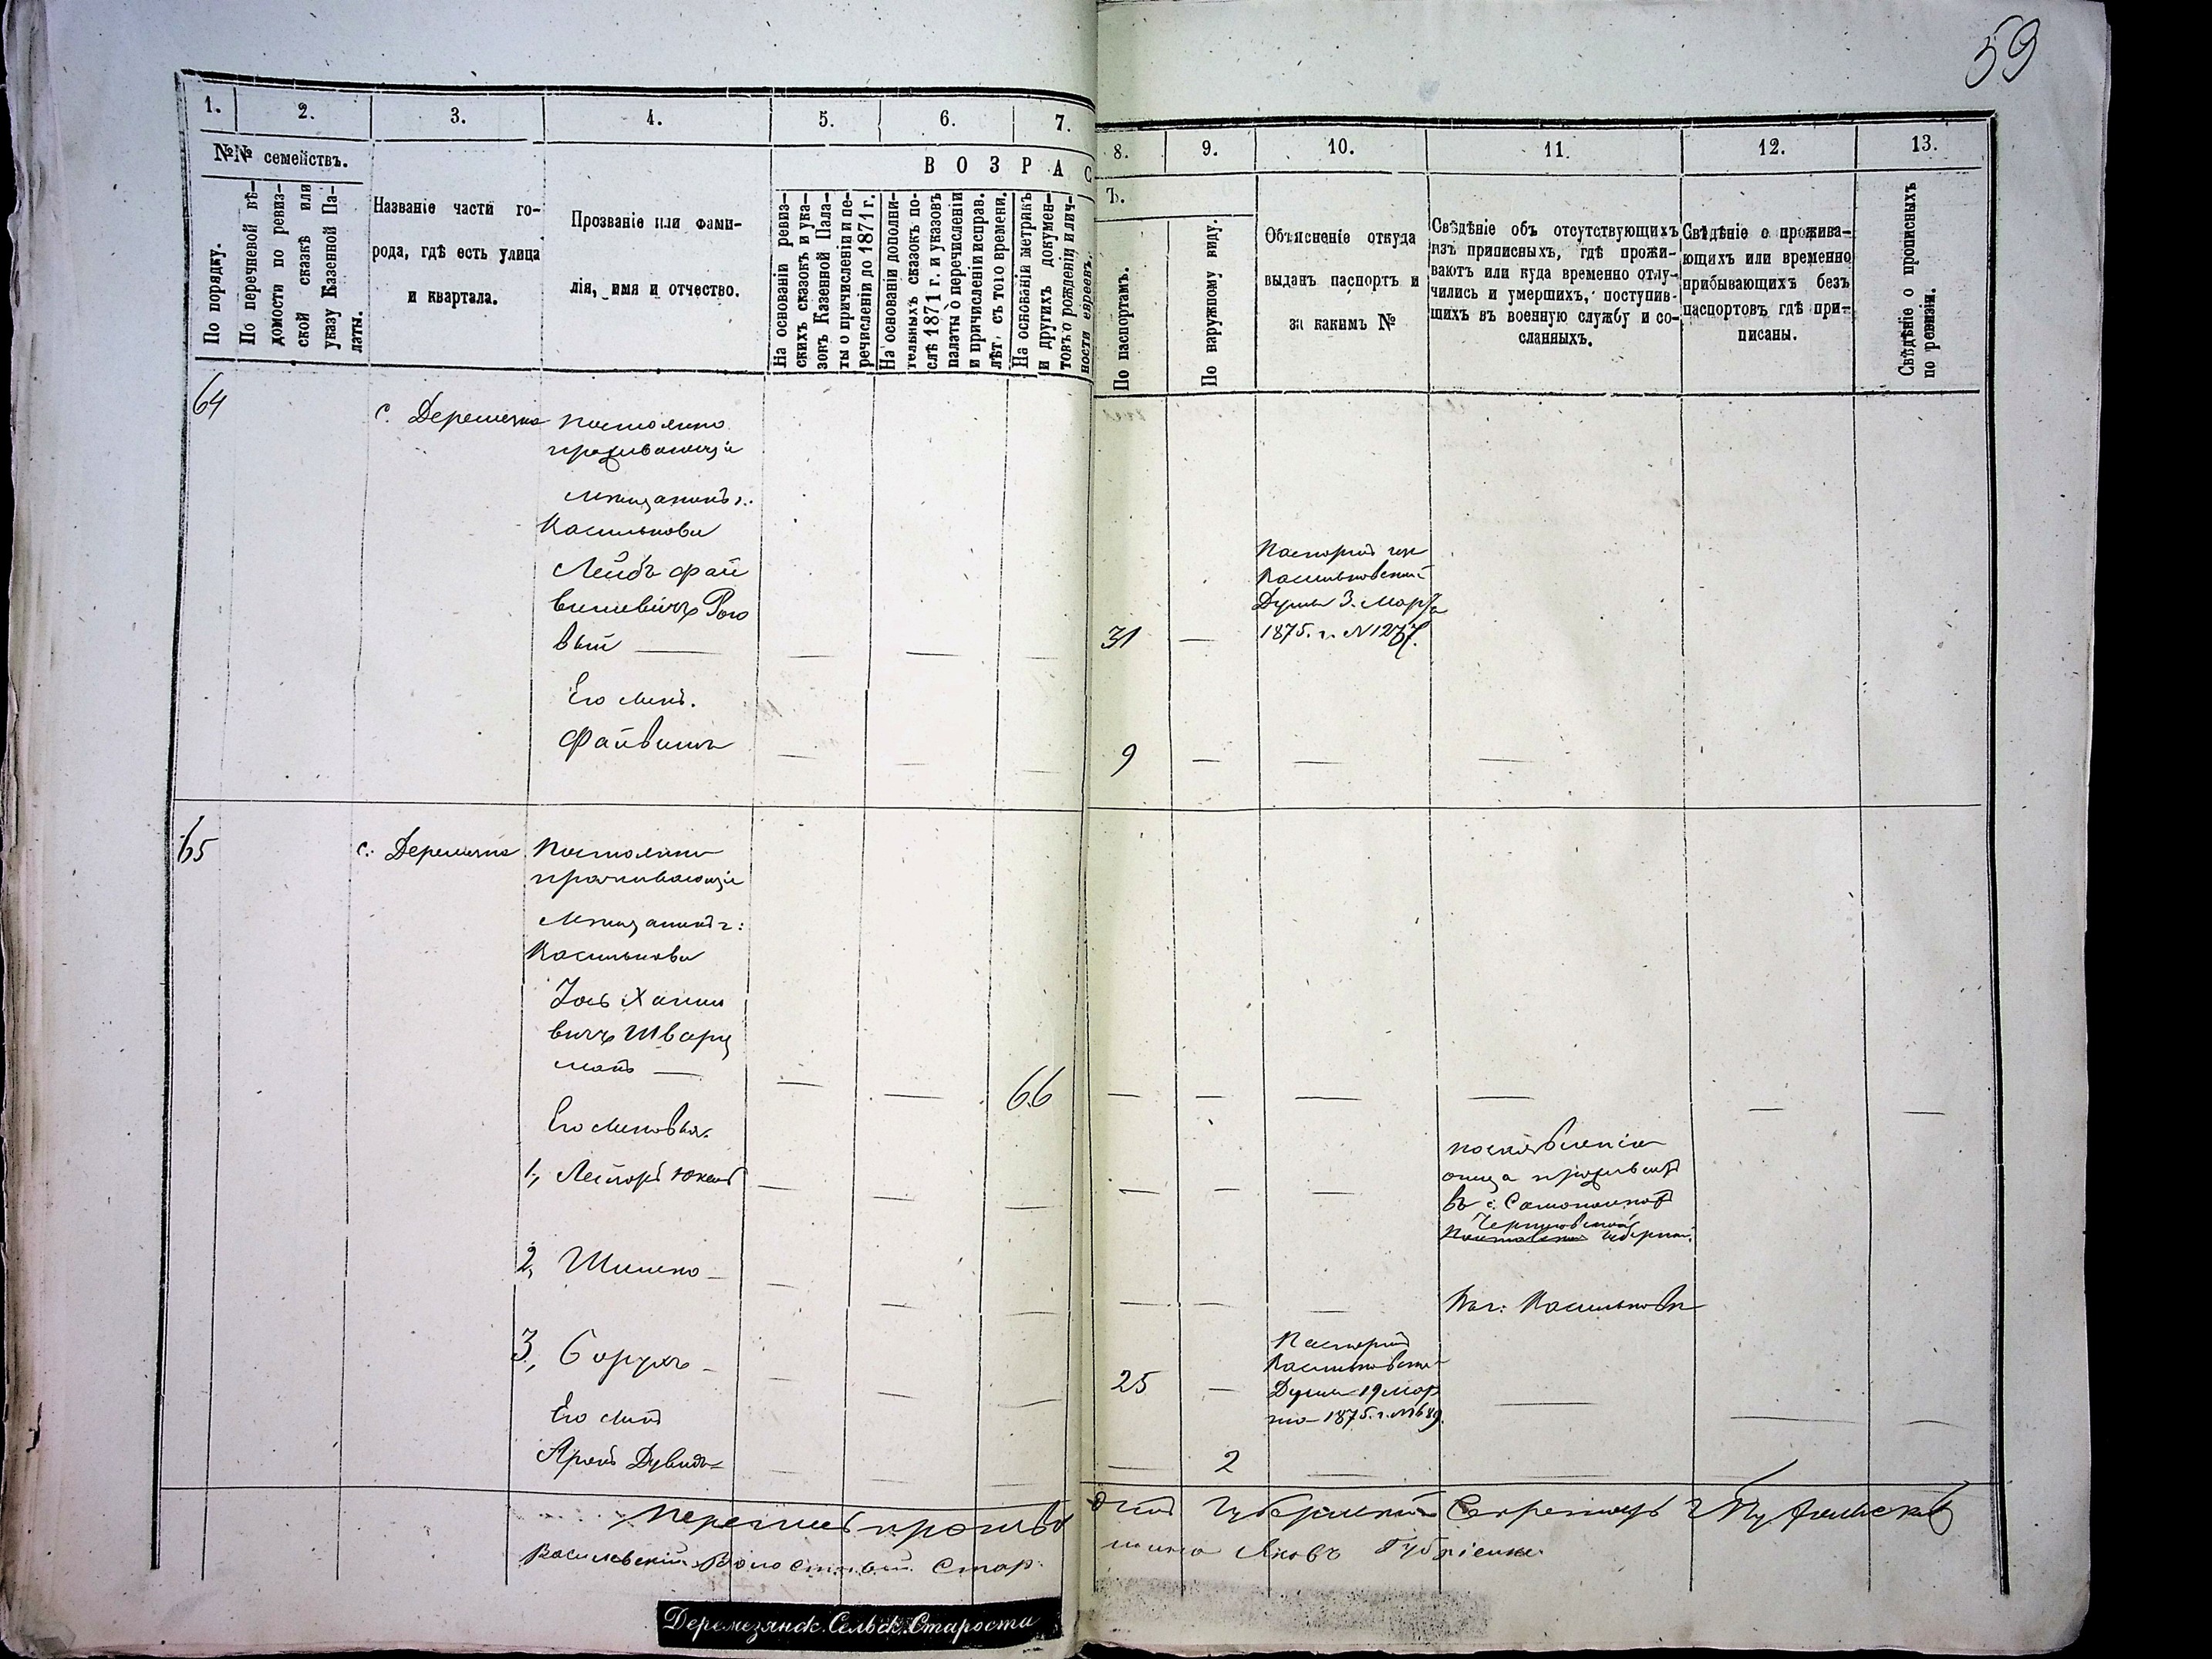 59
1. 2. 3. 4. 5. 6. 7. 8. 9. 10. 11. 12. 13.
№№ семействъ.
По порядку.
По перечневой вѣ-
домости по ревиз-
ской сказкѣ или
указу Казенной Па-
латы.
Названіе части го-
рода, гдѣ есть улица
и квартала.
Прозваніе или фами-
лія, имя и отчество.
ВОЗРАС
Ъ.
На основаніи ревиз-
скихъ сказокъ и ука-
зокъ Казенной Пала-
ты о причисленіи и пе-
речисленіи до 1871 г.
На основаніи дополни-
тельныхъ сказокъ по-
слѣ 1871 г. и указовъ
палаты о перечисленіи
и причисленіи исправ.
лѣт. съ того времени.
На основаніи метрикъ
и другихъ докумен-
товъ о рожденіи и лич-
ности евреевъ.
По паспортамъ.
По наружному виду.
Объясненіе откуда
выданъ паспортъ и
за какимъ №
Свѣдѣніе объ отсутствующихъ
изъ приписныхъ, гдѣ прожи-
ваютъ или куда временно отлу-
чились и умершихъ, поступив-
шихъ въ военную службу и со-
сланныхъ.
Свѣдѣніе о прожива-
ющихъ или временно
прибывающихъ безъ
паспортовъ гдѣ при-
писаны.
Свѣдѣніе о прописныхъ
по ревизіи.
64
с. Деремезна
постоянно
проживающіе
Мѣщанинъ г.
Василькова
Лейбъ Фай
вишевичъ Рого
вый
31 —
Паспортъ изъ
Васильковской
Думы 3. Марта
1875. г. N 1277.
Его сынъ.
Файвишъ
9
65
с. Деремезна
Постоянно
проживающіе
Мѣщанинъ г:
Василькова
Іось Хаимо
вичъ Шварц
манъ —
66
Его сыновья.
1, Лейзоръ
по заявленію
отца проживаетъ
въ с.
Черниговской
губерніи.
2, Шмилько —
въ г: Васильковѣ
3, Борухъ —
25 —
Паспортъ
Васильковской
Думы 19 Мар
та 1875. г. N 689.
Его сынъ
Аронъ Дувидъ —
2
Перепись произво
дилъ Губернскій Секретарь
Волостной Стар
шина Яковъ Губріенко
Деремезянск. Сельск. Старости